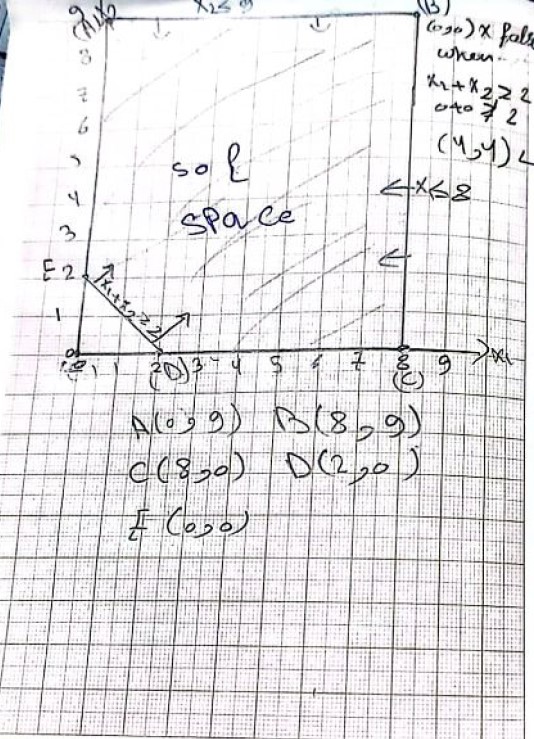 x₂≤9
(B)
(0,0) x false
when
x₁+x₂≥2
0+0≱2
(4,4)
8
7
6
5
4
3
E 2
1
sol
space
←x≤8
x₁+x₂≥2
1 2 3 4 5 6 7 8 9 x₁
(D) (C)
A(0,9) B(8,9)
C(8,0) D(2,0)
E (0,0)